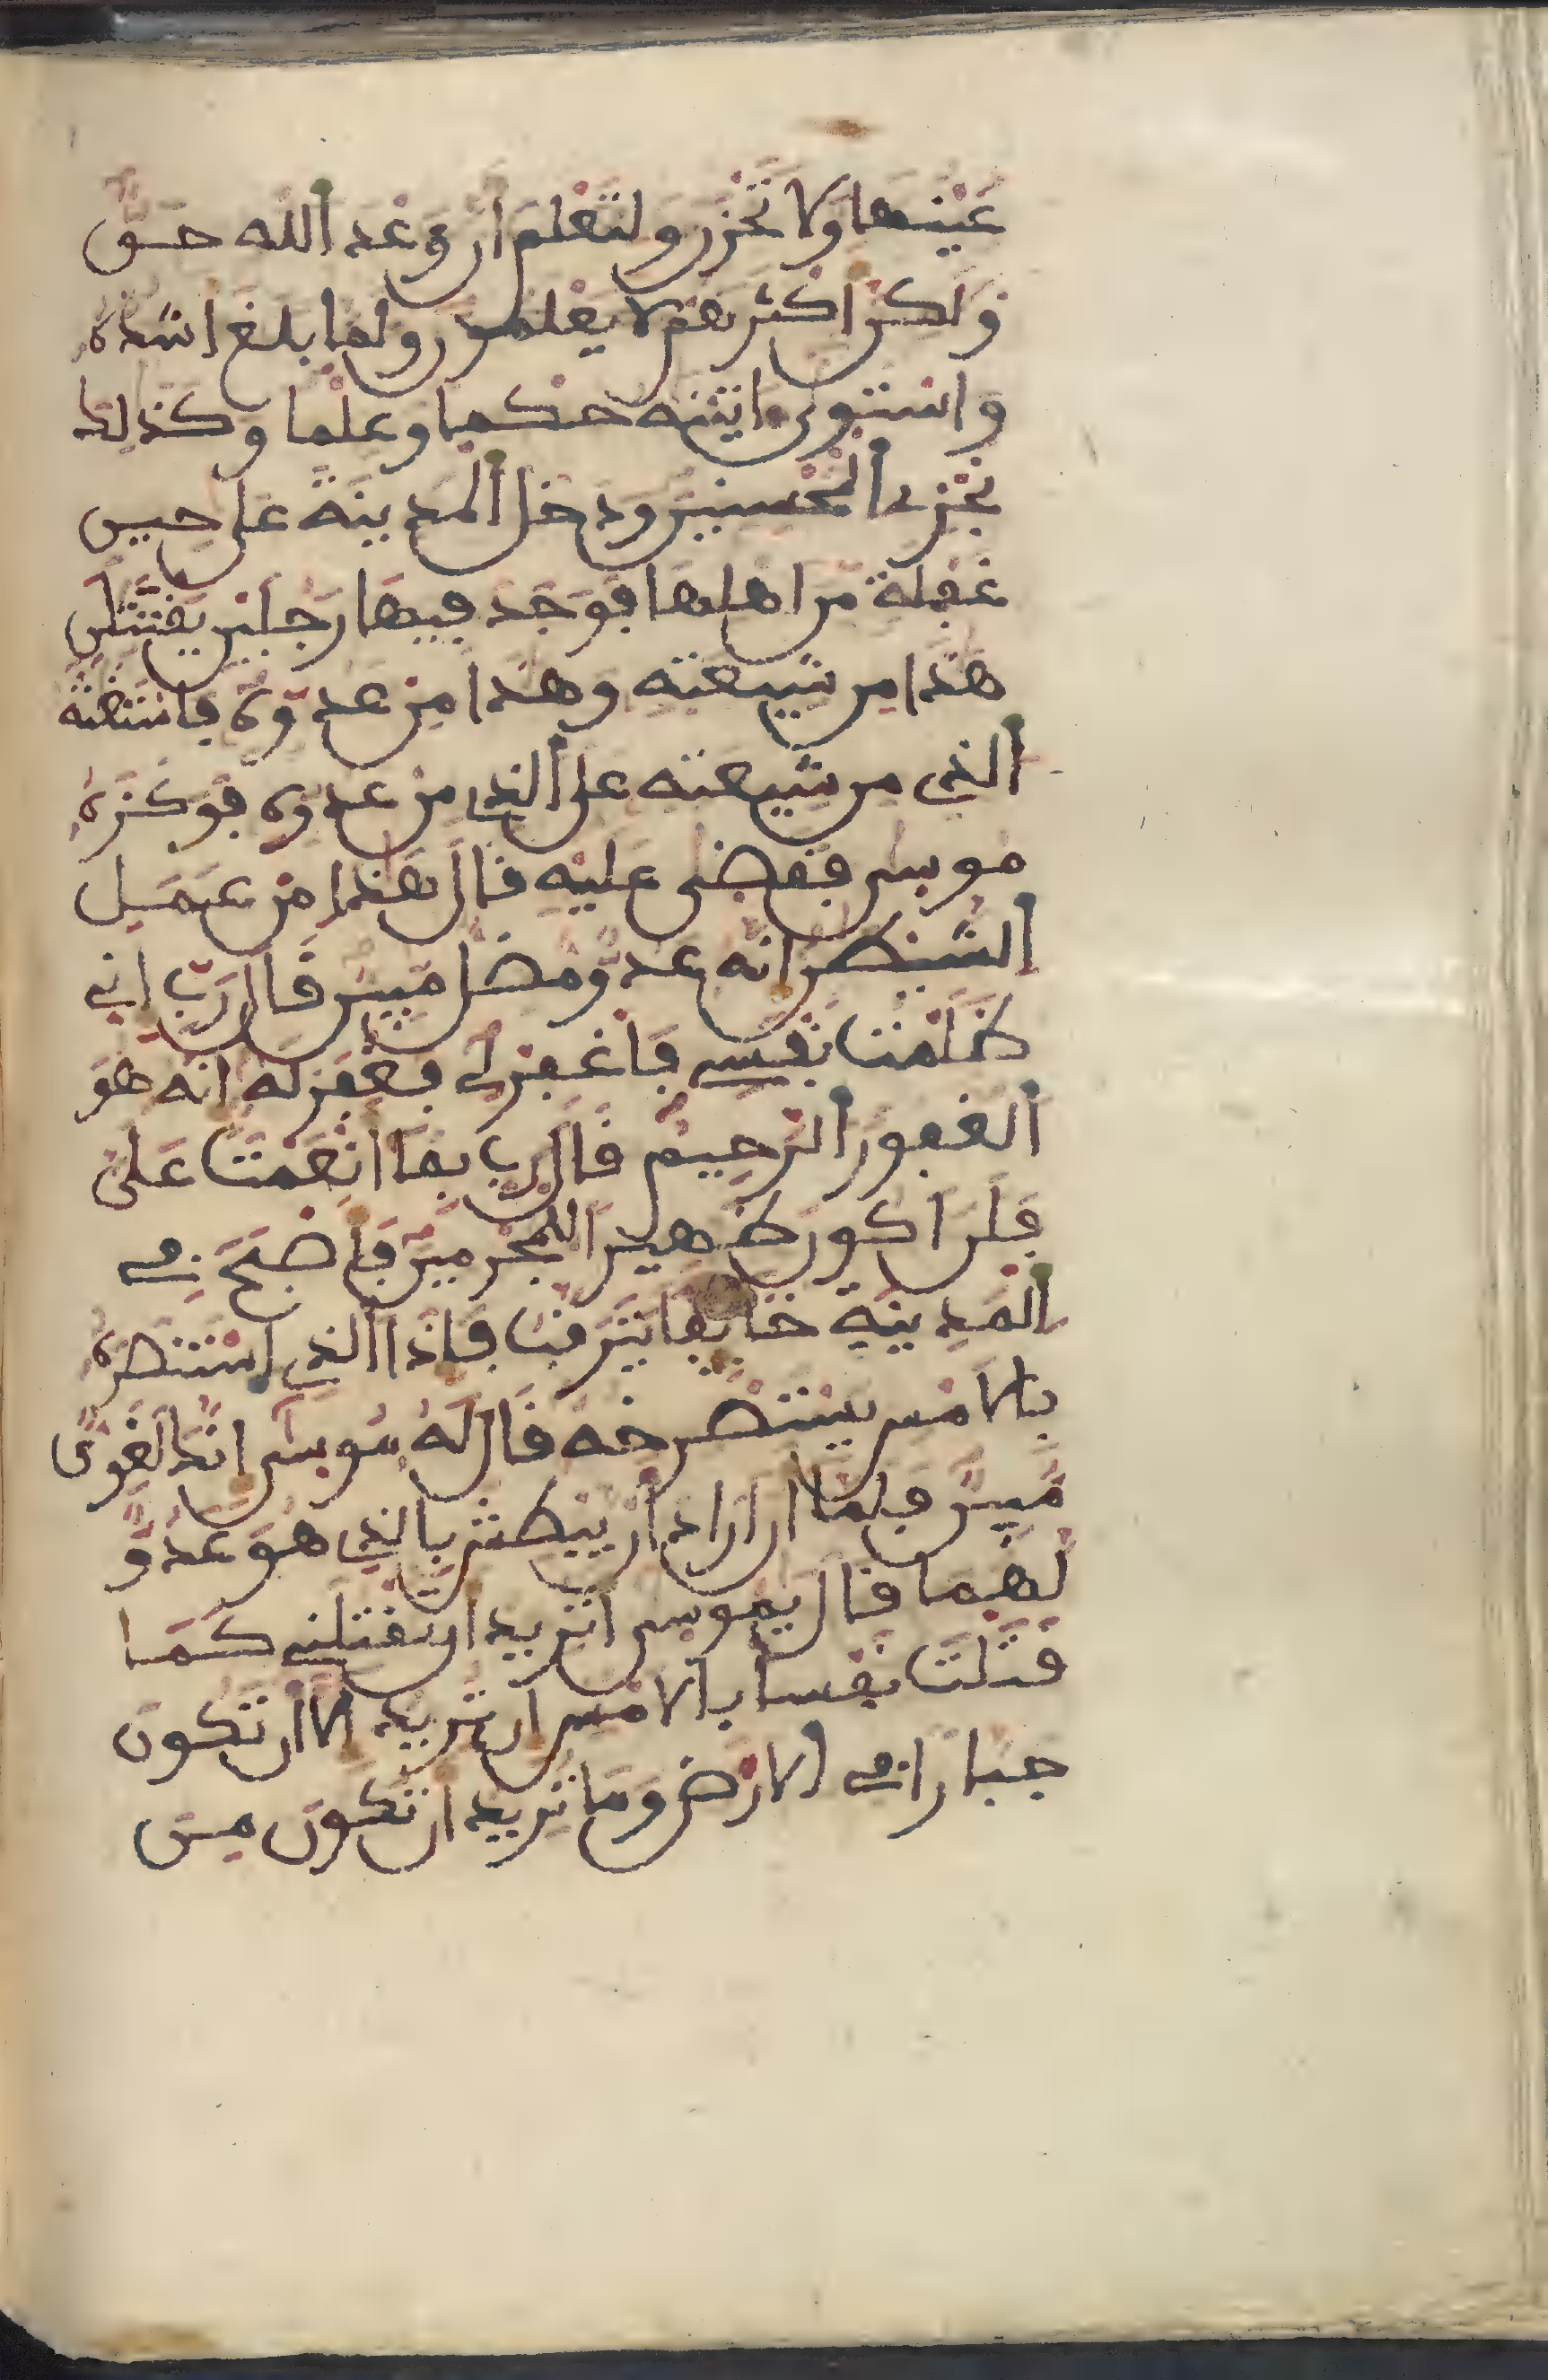 عَيْنُهَا وَلَا تَحْزَنَ وَلِتَعْلَمَ أَنَّ وَعْدَ اَللَّهِ حَقٌّ
وَلَكِنَّ أَكْثَرَهُمْ لَا يَعْلَمُونَ وَلَمَّا بَلَغَ أَشُدَّهُ
وَاسْتَوَى ءَاتَيْنَهُ حُكْمًا وَعِلْمًا وَكَذَلِكَ
نَجْزِي اَلْمُحْسِنِينَ وَدَخَلَ اَلْمَدِينَةَ عَلَى حِينِ
غَفْلَةٍ مِّنْ أَهْلِهَا فَوَجَدَ فِيهَا رَجُلَيْنِ يَقْتَتِلَنِ
هَذَا مِن شِيعَتِهِ وَهَذَا مِنْ عَدُوِّهِ فَاسْتَغَثَهُ
اَلَّذِي مِن شِيعَتِهِ عَلَى اَلَّذِي مِنْ عَدُوِّهِ فَوَكَزَهُ
مُوسَى فَقَضَى عَلَيْهِ قَالَ هَذَا مِنْ عَمَلِ
اَلشَّيْطَنِ إِنَّهُ عَدُوٌّ مُّضِلٌّ مُّبِينٌ قَالَ رَبِّ إِنِّي
ظَلَمْتُ نَفْسِي فَاغْفِرْ لِي فَغَفَرَ لَهُ إِنَّهُ هُوَ
اَلْغَفُورُ اَلرَّحِيمُ قَالَ رَبِّ بِمَا أَنْعَمْتَ عَلَيَّ
فَلَنْ أَكُونَ ظَهِيرًا لِّلْمُجْرِمِينَ فَأَصْبَحَ فِي
اَلْمَدِينَةِ خَائِفًا يَتَرَقَّبُ فَإِذَا اَلَّذِي اِسْتَنصَرَهُ
بِالْأَمْسِ يَسْتَصْرِخُهُ قَالَ لَهُ مُوسَى إِنَّكَ لَغَوِيٌّ
مُّبِينٌ فَلَمَّا أَنْ أَرَادَ أَنْ يَّبْطِشَ بِالَّذِي هُوَ عَدُوٌّ
لَّهُمَا قَالَ يَمُوسَى أَتُرِيدُ أَن تَقْتُلَنِي كَمَا
قَتَلْتَ نَفْسًا بِالْأَمْسِ إِن تُرِيدُ إِلَّا أَن تَكُونَ
جَبَّارًا فِي اِلْأَرْضِ وَمَا تُرِيدُ أَن تَكُونَ مِنَ